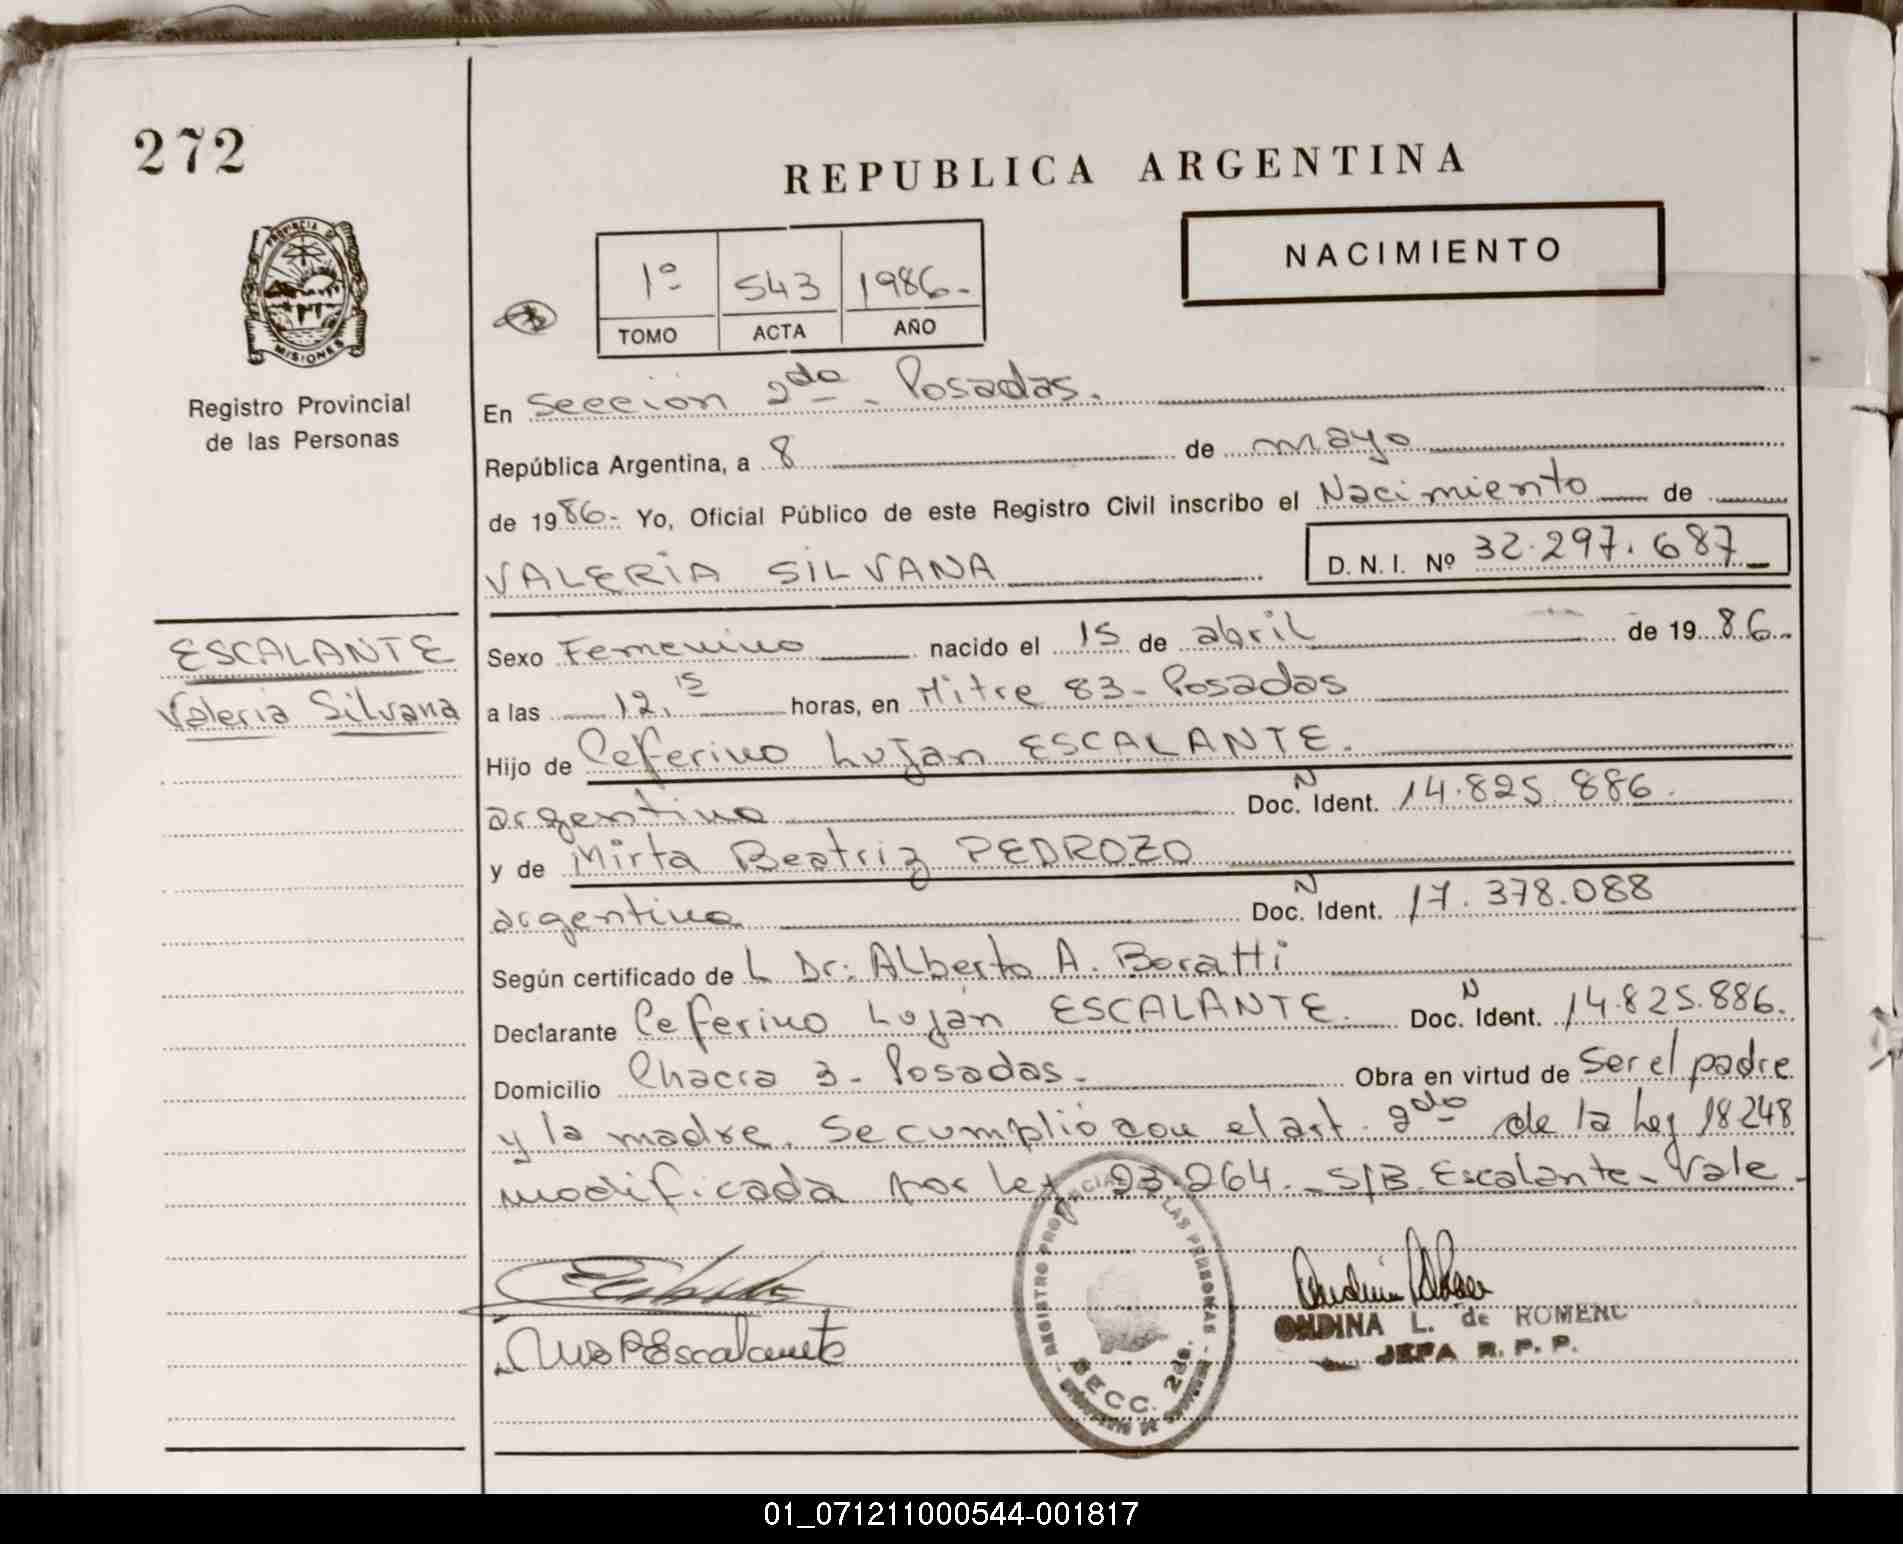 272
REPUBLICA ARGENTINA
NACIMIENTO
PROVINCIA DE
MISIONES
Registro Provincial
de las Personas
1º 543 1986.-
TOMO ACTA AÑO
En Seccion 2do. Posadas.
República Argentina, a 8 de mayo
de 1986.- Yo, Oficial Público de este Registro Civil inscribo el Nacimiento de
VALERIA SILVANA D. N. I. Nº 32.297.687
ESCALANTE
Valeria Silvana
Sexo Femenino nacido el 15 de abril de 1986.
a las 12.15 horas, en Mitre 83 - Posadas
Hijo de Ceferino Lujan ESCALANTE.
argentino Doc. N Ident. 14.825 886.
y de Mirta Beatriz PEDROZO
argentina Doc. N Ident. 17.378.088
Según certificado de L Dr: Alberto A. Boratti
Declarante Ceferino Luján ESCALANTE. Doc. N Ident. 14.825.886.
Domicilio Chacra 3 - Posadas.- Obra en virtud de Ser el padre
y la madre. Se cumplió con el art. 2do de la Ley 18248
modificada por ley 23.264.- S/B. Escalante - Vale.-
REGISTRO PROVINCIAL DE LAS PERSONAS
SECC. 2da.
Escalante
ONDINA L. de ROMERO
JEFA R. P. P.
01_071211000544-001817